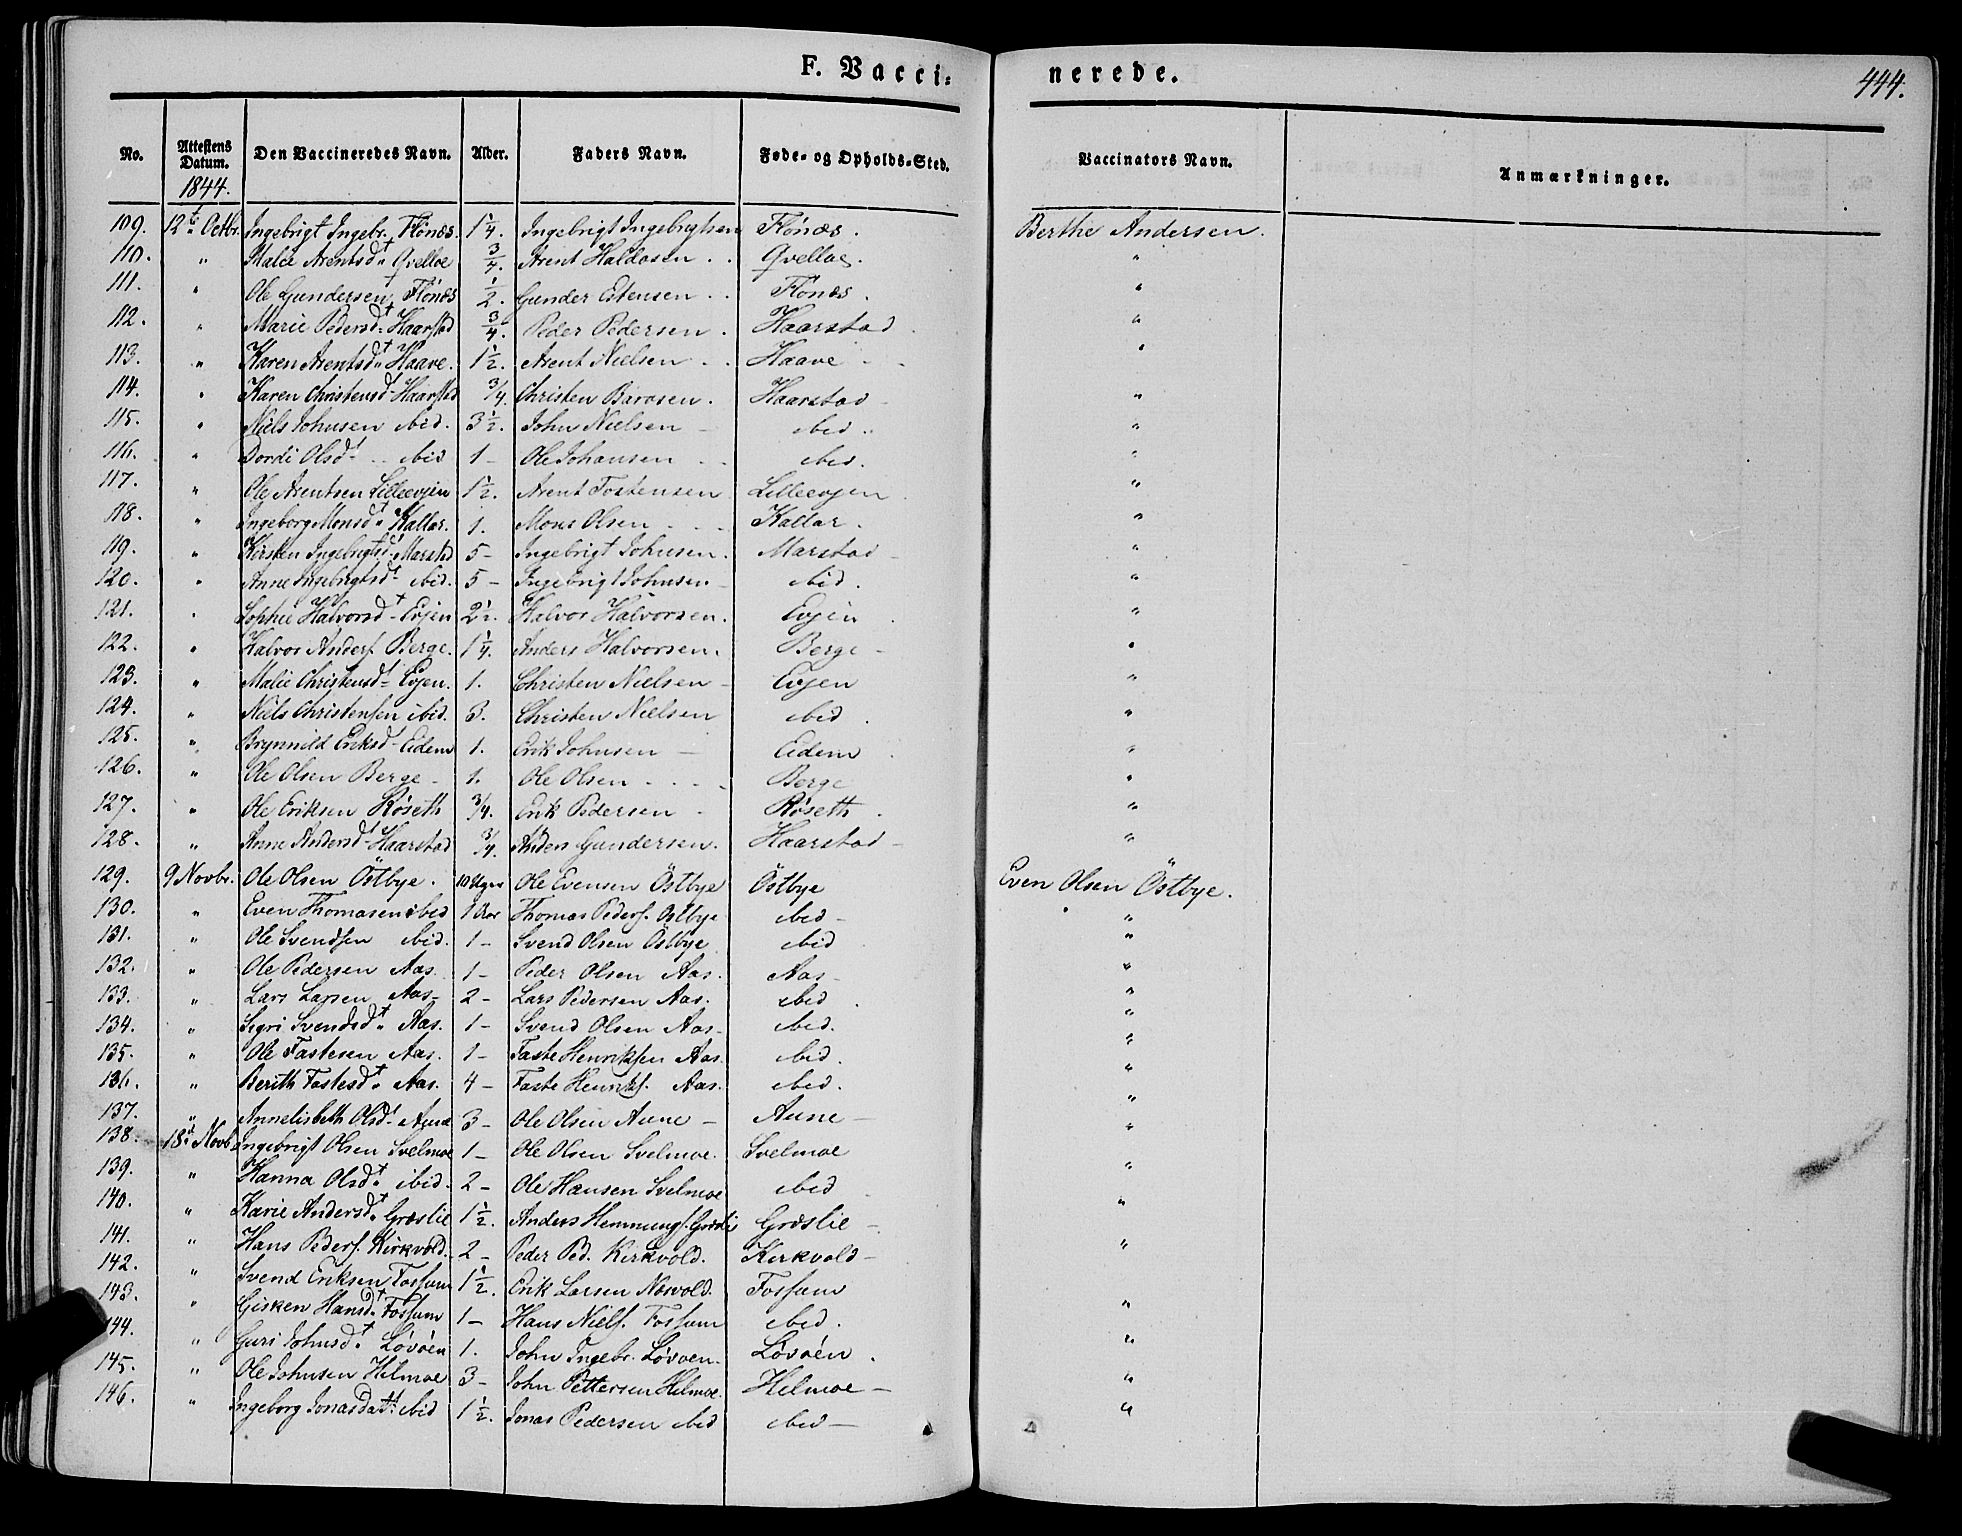 F. Vacci: nerede. 444.
No. Attestens Datum. Den Vaccineredes Navn. Alder. Faders Navn. Føde- og Opholds-Sted. Vaccinators Navn. Anmærkninger.
1844.
109. 12te Octbr. Ingebrigt Ingebr. Flönæs. 1 1/4. Ingebrigt Ingebrigtsen Flönæs. Berthe Andersen.
110. " Malie Arentsdt. Qvelloe 3/4. Arent Haldosen . . Qvelloe. "
111. " Ole Gundersen Flönæs 1/2. Gunder Estensen . . Flönæs. "
112. " Marie Pedersdt. Haarstad 3/4. Peder Pedersen . Haarstad. "
113. " Karen Arentsdt. Haave. 1 1/2. Arent Nielsen . . Haave - "
114. " Karen Christensdt. Haarstad 3/4. Christen Barosen. Haarstad - "
115. " Niels Johnsen ibid. 3 1/2. John Nielsen - ibid. "
116. " Dordi Olsdt. .. ibid 1 - Ole Johansen . . ibid. "
117. " Ole Arentsen Lilleevjen 1 1/2. Arent Tostensen Lilleevjen. "
118. " Ingeborg Monsdt. Kallar. 1. Mons Olsen . . . Kallar. "
119. " Kirsten Ingebrigtsd. Marstad 5 - Ingebrigt Johnsen. Marstad - "
120. " Anne Ingebrigtsdt. ibid. 5 - Ingebrigt Johnsen - ibid. "
121. " Sophie Halvorsdt. Evjen 2 1/2. Halvor Halvorsen. Evjen . "
122. " Halvor Anders. Berge. 1 1/4. Anders Halvorsen. Berge - "
123. " Malie Christensdt. Evjen. 1. Christen Nielsen - Evjen "
124. " Niels Christensen ibid. 3. Christen Nielsen ibid. "
125. " Brynnild Eriksd. Eidem 1. Erik Johnsen - Eidem . "
126. " Ole Olsen Berge - 1. Ole Olsen . . . Berge "
127. " Ole Eriksen Röseth 3/4. Erik Pedersen - Röseth . "
128. " Anne Andersdt. Haarstad 3/4. Anders Gundersen. Haarstad - "
129. 9 Novbr. Ole Olsen Östbye. 10 Uger Ole Evensen Östbye Östbye Even Olsen Östbye.
130. " Even Thomasen ibid 1 Aar Thomas Peders. Ostbye ibid - "
131. " Ole Svendsen ibid. 1 - Svend Olsen Östbye ibid "
132. " Ole Pedersen Aas. 1 - Peder Olsen Aas. Aas - "
133. " Lars Larsen Aas - 2 - Lars Pedersen Aas. ibid . "
134. " Sigri Svendsdt. Aas. 1 - Svend Olsen Aas - ibid. "
135. " Ole Fastesen Aas. 1 - Faste Henriksen Aas. ibid. "
136. " Berith Fastesdt. Aas. 4 - Faste Henriks. Aas. ibid. "
137. " Annelisbeth Olsdt. Aune 3 - Ole Olsen Aune - Aune - "
138. 18d. Novb. Ingebrigt Olsen Svelmoe 1 - Ole Olsen Svelmoe. Svelmoe "
139. " Hanna Olsdt. ibid. 2 - Ole Hansen Svelmoe ibid - "
140. " Karie Andersdt. Græslie 1 1/2. Anders Hemmings. Græslie Græslie - "
141. " Hans Peders. Kirkvold. 2 - Peder Ped. Kirkvold. Kirkvold - "
142. " Svend Eriksen Fossum 1 1/2. Erik Larsen Fossum
143. " Gisken Hansdt. Fossum 1 - Hans Niels. Fossum ibid. "
144. " Guri Johnsdt. Lövöen 1. John Ingebr. Lövoen. Lövöen . "
145. " Ole Johnsen Hilmoe 3 - John Pettersen Hilmoe. Hilmoe - "
146. " Ingeborg Jonasdatt. ibid 1 1/2. Jonas Pedersen ibid ibid - "